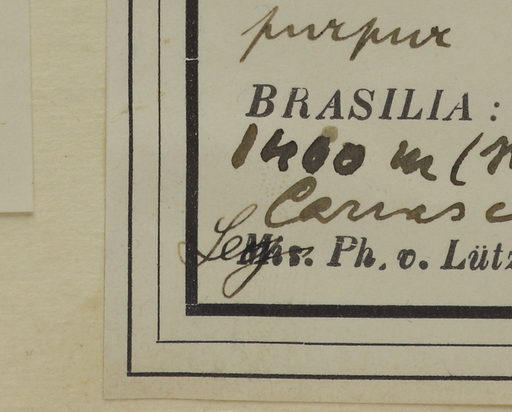 purpur
BRASILIA:
1400 m (
Carras
Leg. Ph. v. Lütz